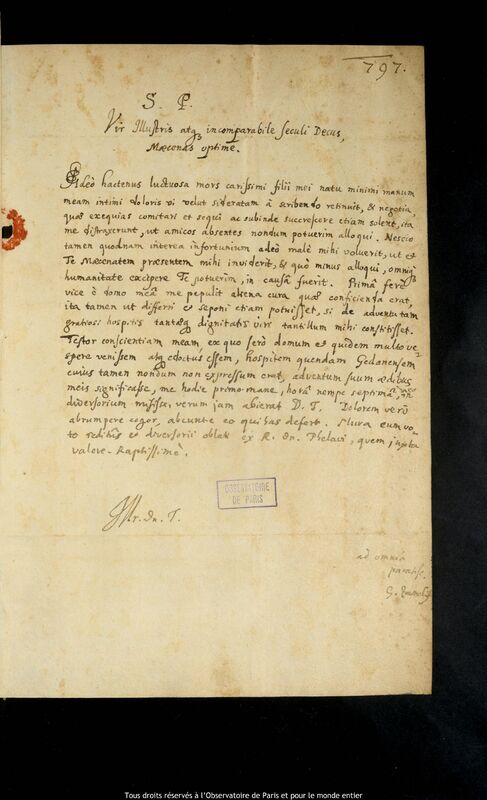 797.
S. P.
Vir Illustris atq; incomparabile seculi Decus,
Mæcenas optime.
Adeò hactenus luctuosa mors carissimi filii mei natu minimi manum
meam intimi doloris vi velut sideratam à scribendo retinuit, & negotia,
quæ exequias comitari et sequi ac subinde succrescere etiam solent, ita
me distraxerunt, ut amicos absentes nondum potuerim alloqui. Nescio
tamen quodnam interea infortunium adeò malè mihi voluerit, ut et
Te Mæcenatem præsentem mihi inviderit, & quò minus alloqui, omniq;
humanitate excipere Te potuerim, in causâ fuerit. Primâ ferè
vice è domo meâ me pepulit aliena cura quæ conficienda erat,
ita tamen ut differri et seponi etiam potuisset, si de adventu tam
gratosi hospitis tantæq; dignitatis viri tantillum mihi constitisset.
Testor conscientiam meam, ex quo serò domum et quidem multo ve-
spere venissem atq; edoctus essem, hospitem quendam Gedanensem
cuius tamen nondum non expressum erat, adventum suum ædibus
meis significasse, me hodie primo mane, horâ nempe septimâ, in
diversorium misisse, verum jam abierat D. T. Dolorem verò
abrumpere cogor, abeunte eo qui has defert. Plura ex
to reditûs et diversorii oblati ex R. Dn. Phelavi, quem juxta
valere. Raptissimè.
Ill. Dn. T.
OBSERVATOIRE
DE PARIS
ad omnia
paratiss.
G.
Tous droits réservés à l'Observatoire de Paris et pour le monde entier